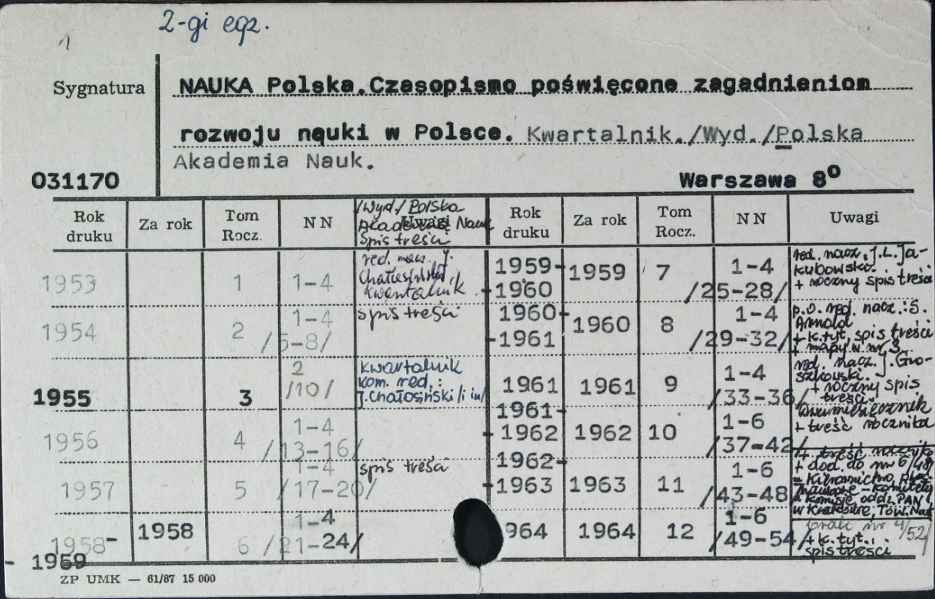 2-gi egz.
1
Sygnatura
NAUKA Polska.Czasopismo poświęcone zagadnieniom
rozwoju nauki w Polsce. Kwartalnik./Wyd./Polska
Akademia Nauk.
031170 Warszawa 8º
Rok druku Za rok Tom Rocz. NN Uwagi Rok druku Za rok Tom Rocz. NN Uwagi
/Wyd./ Polska
Akademia Nauk
Spis treści
1953 1 1-4 red. nacz. J. Chałasiński kwartalnik
1954 2 1-4 /5-8/ spis treści
1955 3 2 /10/ kwartalnik kom. red.: J. Chałosiński /i in/
1956 4 1-4 /13-16/
1957 5 1-4 /17-20/ spis treści
1958- 1959 1958 6 1-4 /21-24/
1959- -1960 1959 7 1-4 /25-28/ red. nacz. J.L. Jakubowski. + roczny spis treści
1960- -1961 1960 8 1-4 /29-32/ p.o. red. nacz.: S. Arnold + k.tyt. spis treści + mapy w nr 3
1961 1961 9 1-4 /33-36/ red. nacz. J. Groszkowski. + roczny spis treści.
1961- -1962 1962 10 1-6 /37-42/ Dwumiesięcznik + treść rocznika
1962- -1963 1963 11 1-6 /43-48/ + treść rocznika + dod. do nr 6/48/ komisje oddz. PAN w Krakowie, Tow. Nauk
964 1964 12 1-6 /49-54/ nr 4/52/ + k. tyt. i spis treści
ZP UMK — 61/87 15 000